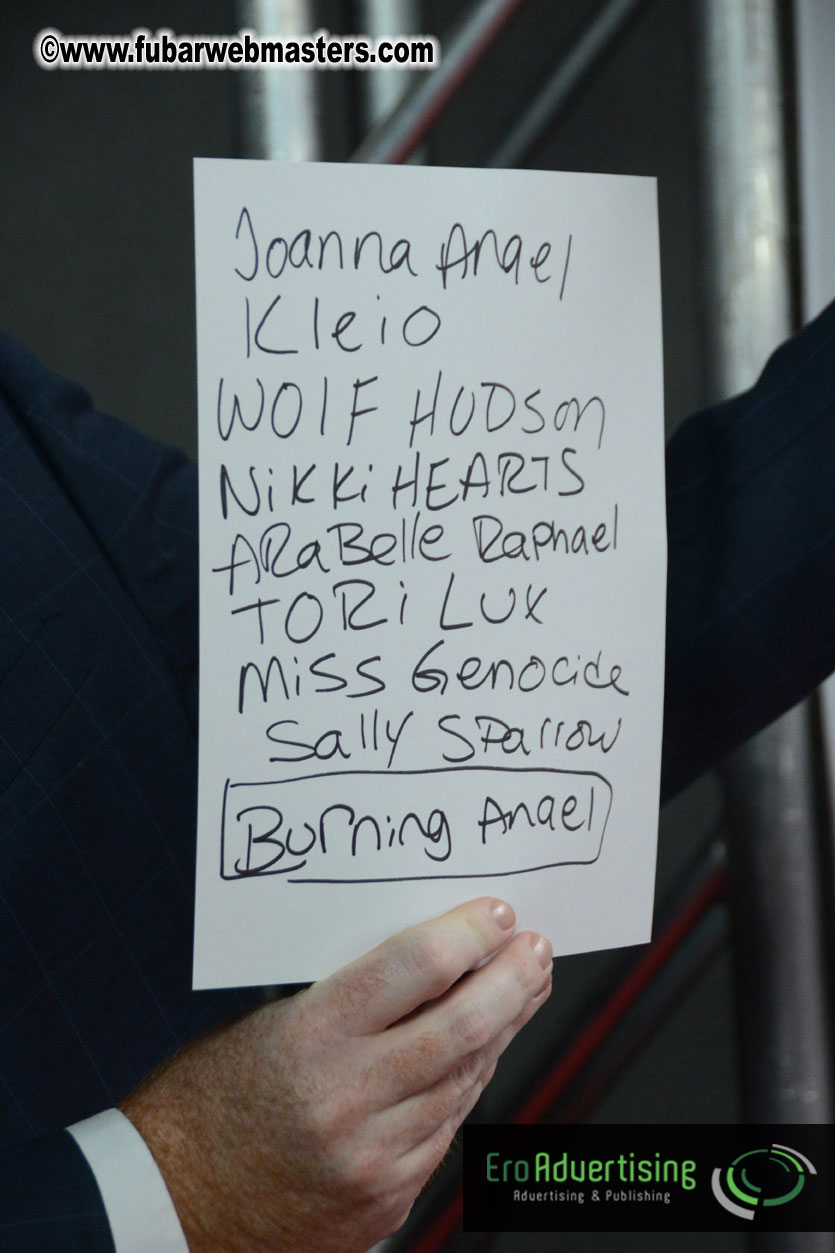 ©www.fubarwebmasters.com
Joanna Angel
Kleio
WOLF HUDSON
NiKKi HEARTS
ARaBelle Raphael
TORi LUX
Miss Genocide
Sally SParrow
Burning Angel
EroAdvertising
Advertising & Publishing